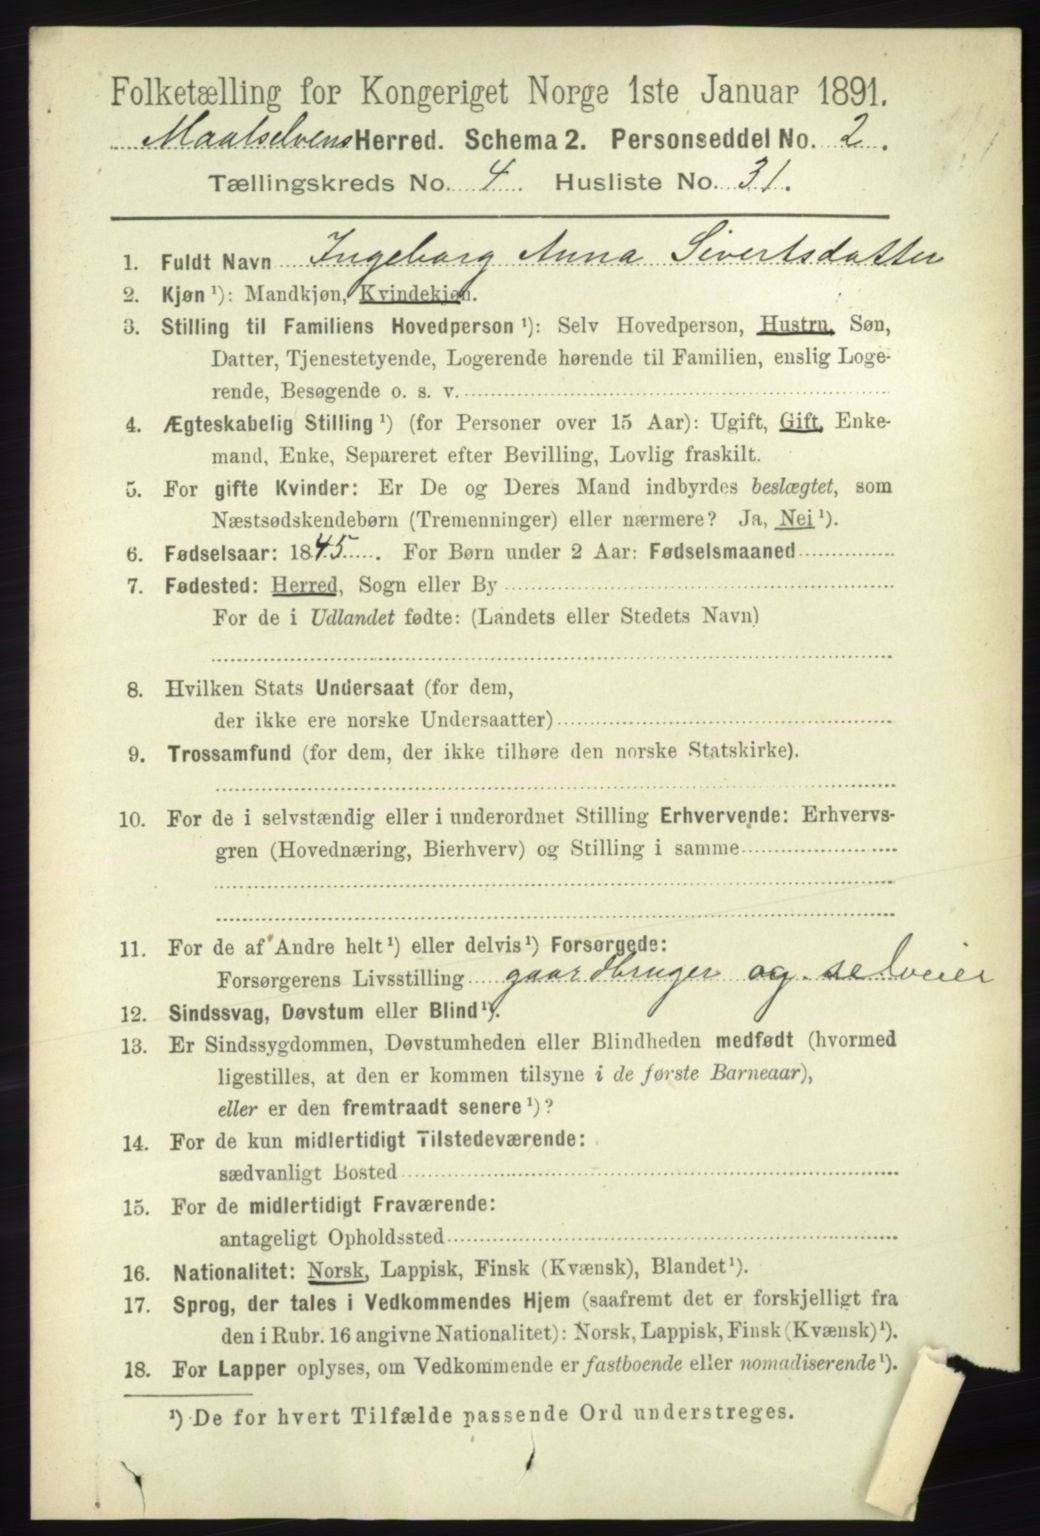 Folketælling for Kongeriget Norge 1ste Januar 1891.
Maalselvens Herred. Schema 2. Personseddel No. 2.
Tællingskreds No. 4. Husliste No. 31.
1. Fuldt Navn Ingeborg Anna Sivertsdatter
2. Kjøn ¹): Mandkjøn, Kvindekjøn.
3. Stilling til Familiens Hovedperson ¹): Selv Hovedperson, Hustru, Søn,
Datter, Tjenestetyende, Logerende hørende til Familien, enslig Loge-
rende, Besøgende o. s. v.
4. Ægteskabelig Stilling ¹) (for Personer over 15 Aar): Ugift, Gift, Enke-
mand, Enke, Separeret efter Bevilling, Lovlig fraskilt.
5. For gifte Kvinder: Er De og Deres Mand indbyrdes beslægtet, som
Næstsødskendebørn (Tremenninger) eller nærmere? Ja, Nei ¹).
6. Fødselsaar: 1845. For Børn under 2 Aar: Fødselsmaaned
7. Fødested: Herred, Sogn eller By
For de i Udlandet fødte: (Landets eller Stedets Navn)
8. Hvilken Stats Undersaat (for dem,
der ikke ere norske Undersaatter)
9. Trossamfund (for dem, der ikke tilhøre den norske Statskirke).
10. For de i selvstændig eller i underordnet Stilling Erhvervende: Erhvervs-
gren (Hovednæring, Bierhverv) og Stilling i samme
11. For de af Andre helt ¹) eller delvis ¹) Forsørgede:
Forsørgerens Livsstilling gaardbruger og selveier
12. Sindssvag, Døvstum eller Blind ¹).
13. Er Sindssygdommen, Døvstumheden eller Blindheden medfødt (hvormed
ligestilles, at den er kommen tilsyne i de første Barneaar),
eller er den fremtraadt senere ¹)?
14. For de kun midlertidigt Tilstedeværende:
sædvanligt Bosted
15. For de midlertidigt Fraværende:
antageligt Opholdssted
16. Nationalitet: Norsk, Lappisk, Finsk (Kvænsk), Blandet ¹).
17. Sprog, der tales i Vedkommendes Hjem (saafremt det er forskjelligt fra
den i Rubr. 16 angivne Nationalitet): Norsk, Lappisk, Finsk (Kvænsk) ¹).
18. For Lapper oplyses, om Vedkommende er fastboende eller nomadiserende ¹).
¹) De for hvert Tilfælde passende Ord understreges.